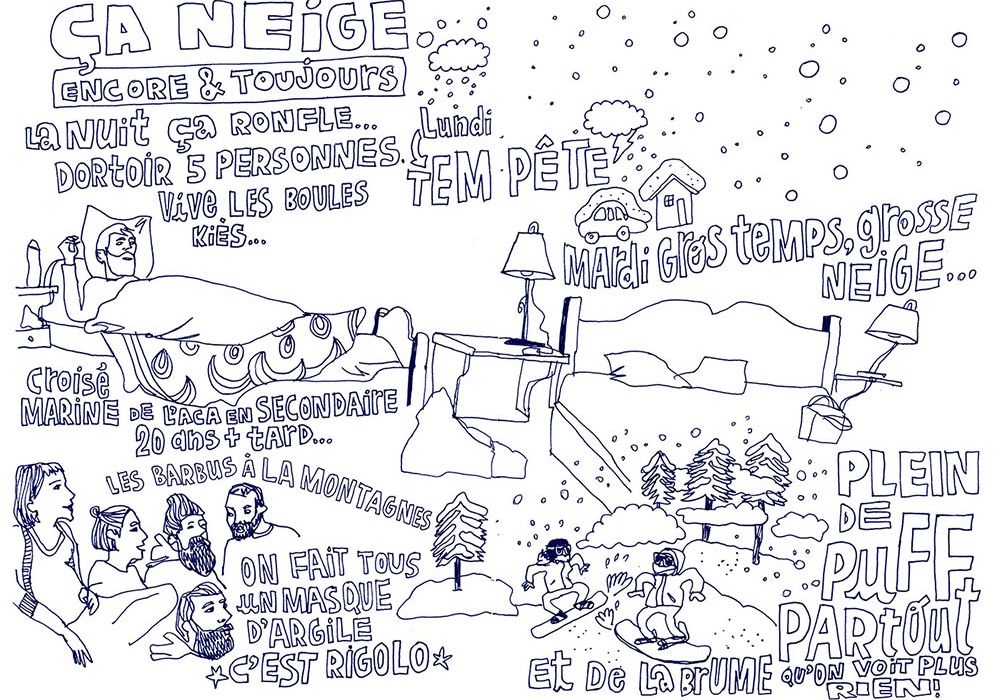 ÇA NEiGE
ENCORE & TOUJOURS
La NUit ça RONFLE...
DORTOIR 5 PERSONNES.
ViVe LES BOULES
KiES...
Lundi
TEMPÊTE
MARdi GROS temps, grosse
NEiGE...
croisé
MARINE DE L'ACA EN SECONDAIRE
20 ans + tard...
LES BARBUS À LA MONTAGNES
ON FAIT TOUS
UN MASQUE
D'ARGILE
C'EST RIGOLO
PLEIN
DE
PUFF
PARtOUt
Et DE La BRUME QU'ON VOIT PLUS
RIEN!